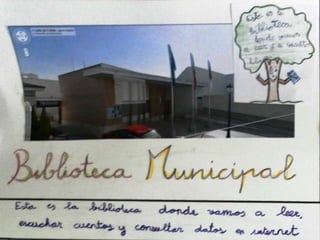 Esta es la
biblioteca
donde vamos
a leer y a
Biblioteca Municipal
Esta es la biblioteca donde vamos a leer,
escuchar cuentos y consultar datos en internet